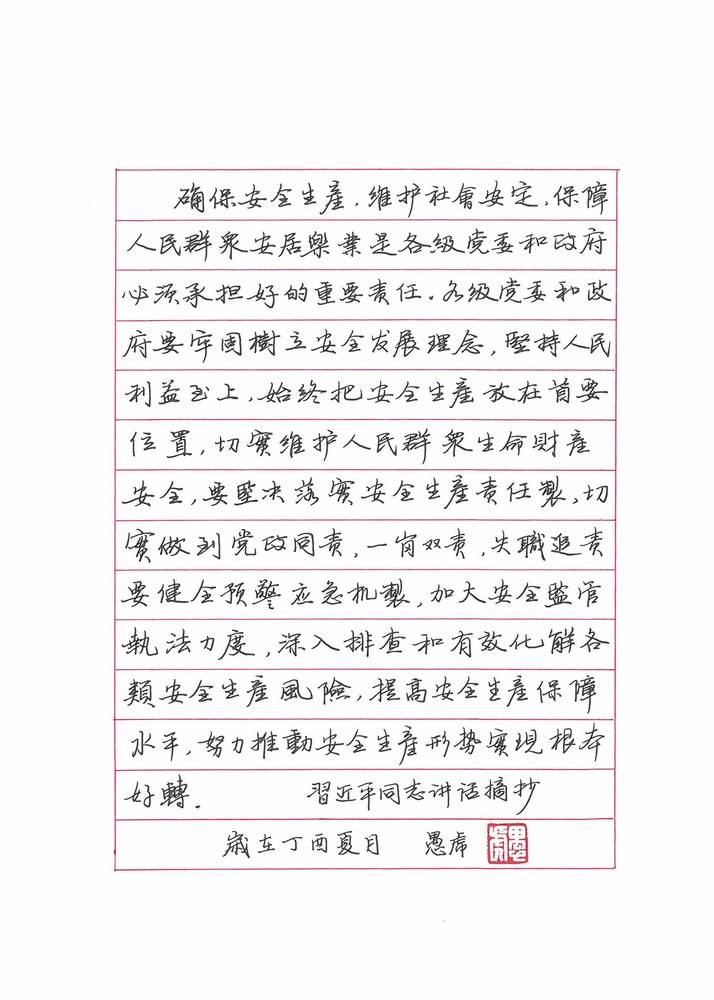 确保安全生產，维护社會安定，保障
人民群衆安居樂業是各级党委和政府
必须承担好的重要责任。各级党委和政
府要牢固樹立安全发展理念，堅持人民
利益至上，始终把安全生產放在首要
位置，切實维护人民群衆生命財產
安全，要堅决落實安全生產责任製，切
實做到党政同责，一岗双责，失職追责
要健全预警应急机製，加大安全监管
執法力度，深入排查和有效化解各
類安全生産風險，提高安全生産保障
水平，努力推動安全生産形势實现根本
好轉．習近平同志讲话摘抄
歲在丁酉夏月 愚虎